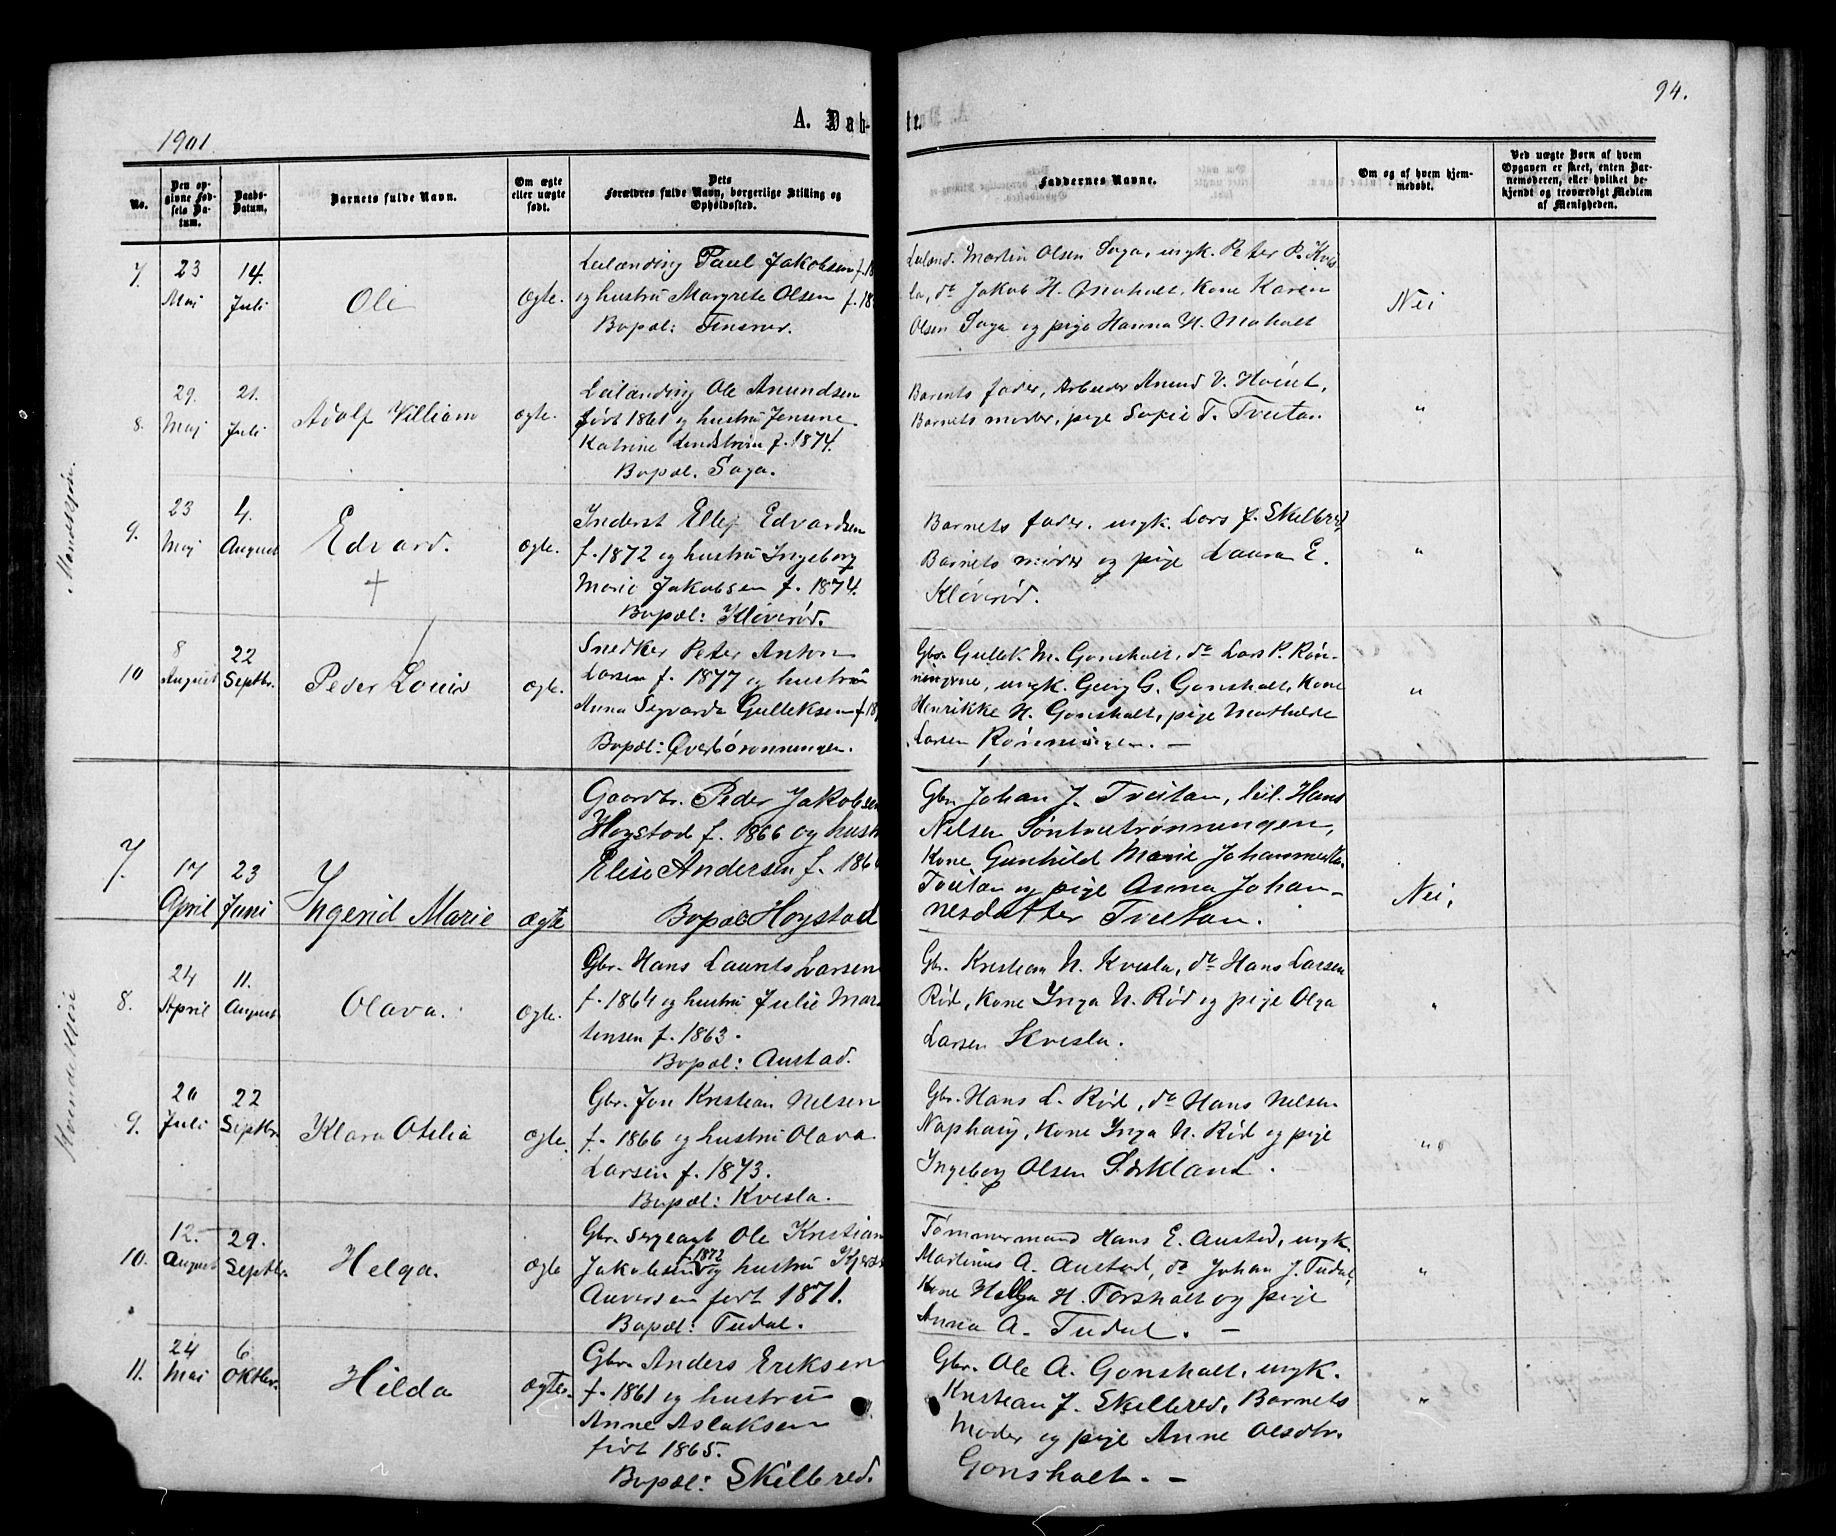 94.
A. Døbte.
1901.
No.
Den opgivne Fødsels Datum.
Daabs-Datum.
Barnets fulde Navn.
Om ægte eller uægte født.
Dets Forældres fulde Navn, borgerlige Stilling og Opholdssted.
Faddernes Navne.
Om og af hvem hjemmedøbt.
Ved uægte Børn af hvem Opgaven er skeet, enten Barnemoderen, eller hvilket bekjendt og troværdigt Medlem af Menigheden.
Mandekjøn.
7.
23 Mai
14. Juli
Ole
Ægte.
Leilænding Paul Jakobsen f. 18
og hustru Margrete Olsen f. 18
Bopæl: Finsrud.
Leilænd. Martin Olsen Saga, ungk. Peter P. Kves
la, do Jakob H. Moholt, Kone Karen
Olsen Saga og pige Hanna N. Moholt
Nei
8.
29. Maj
21. Juli
Adolf Villiam
ægte.
Leilænding Ole Anundsen
født 1861 og hustru Jensine
Katrine Lindstrøm f. 1874.
Bopæl. Saga.
Barnets fader, Arbeider Anund V.
Barnets moder, pige Sofie T. Tveitan
"
9.
23 Maj
4. August
Edvard.
+
ægte.
Inderst Ellef Edvardsen
f. 1872 og hustru Ingeborg
Marie Jakobsen f. 1874.
Bopæl: Kløverød.
Barnets fader. ungk. Lars J. Skilbred
Barnets moder og pige Laura E.
Kløverød.
"
10
8 August
22 Septbr.
Peder Louis
ægte.
Snedker Peter Anton
Larsen f. 1877 og hustru
Anna Sigvarda Gulleksen f. 18
Bopæl: Øverbørønningen.
Gbr. Gullek M. Gonsholt, do Lars P. Røn-
ningene, ungk. Georg G. Gonsholt, Kone
Henrikke N. Gonsholt, pige Mathilde
Larsen Rønningen. —
"
Kvindekjøn
7.
17 April
23 Juni
Ingerid Marie
ægte
Gaardbr. Peder Jakobsen
Høystad f. 1866 og hustr
Elise Andersen f. 186
Bopæl Høystad
Gbr Johan J. Tveitan, leil. Hans
Nelsen
Kone Gunhild Marie Johannesdtr.
Tveitan og pige Anna Johan-
nesdatter Tveitan.
Nei,
8.
24 April
11. August
Olava.
Ægte.
Gbr. Hans Laurits Larsen
f. 1864 og hustru Julie Mar
tensen f. 1863.
Bopæl: Austad.
Gbr. Kristian N. Kvesla, do Hans Larsen
Rød, Kone Inga N. Rød og pige Olga
Larsen Kvesla.
"
9.
20 Juli
22 Septbr
Klara Otelia
ægte.
Gbr. Jon Kristian Nelsen
f. 1866 og hustru Olava
Larsen f. 1873.
Bopæl: Kvesla.
Gbr. Hans L. Rød, do Hans Nelsen
Naphaug, Kone Inga N. Rød og pige
Ingeborg Olsen Sækland.
"
10.
12. August
29. Septbr.
Helga.
ægte
Gbr. Sergeant Ole Kristian
Jakobsen f. 1872 og hustru
Anversen født 1871.
Bopæl: Tudal.
Tømmermand Hans E. Austad, ungk.
Martinus A. Austad, do Johan J. Tudal,
Kone Helga H. Forsholt og pige
Anna A. Tudal. —
"
11.
24 Mai
6. Oktbr.
Hilda
ægte.
Gbr. Anders Eriksen
f. 1861 og hustru
Anne Aslaksen
født 1865.
Bopæl: Skilbred.
Gbr. Ole A. Gonsholt, ungk.
Kristian J. Skilbred, Barnets
Moder og pige Anne Olsdtr.
Gonsholt. —
"